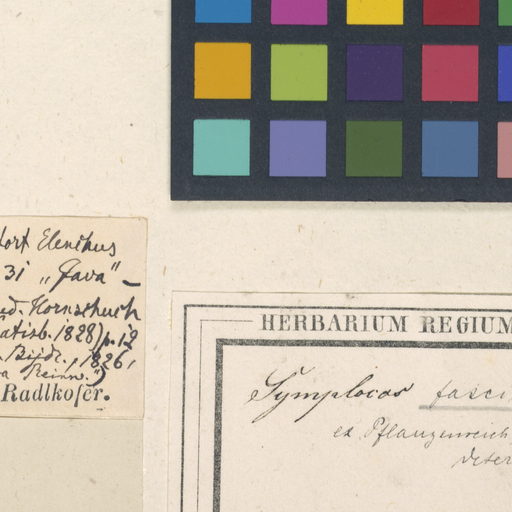 Hort Elenchus
31 „Java" –
ed. Hornschuch
Ratisb. 1828) p. 12
Bijdr., 1826,
Reinw.")
Radlkofer.
HERBARIUM REGIUM
Symplocos fasci
ex Pflanzenreich
deter